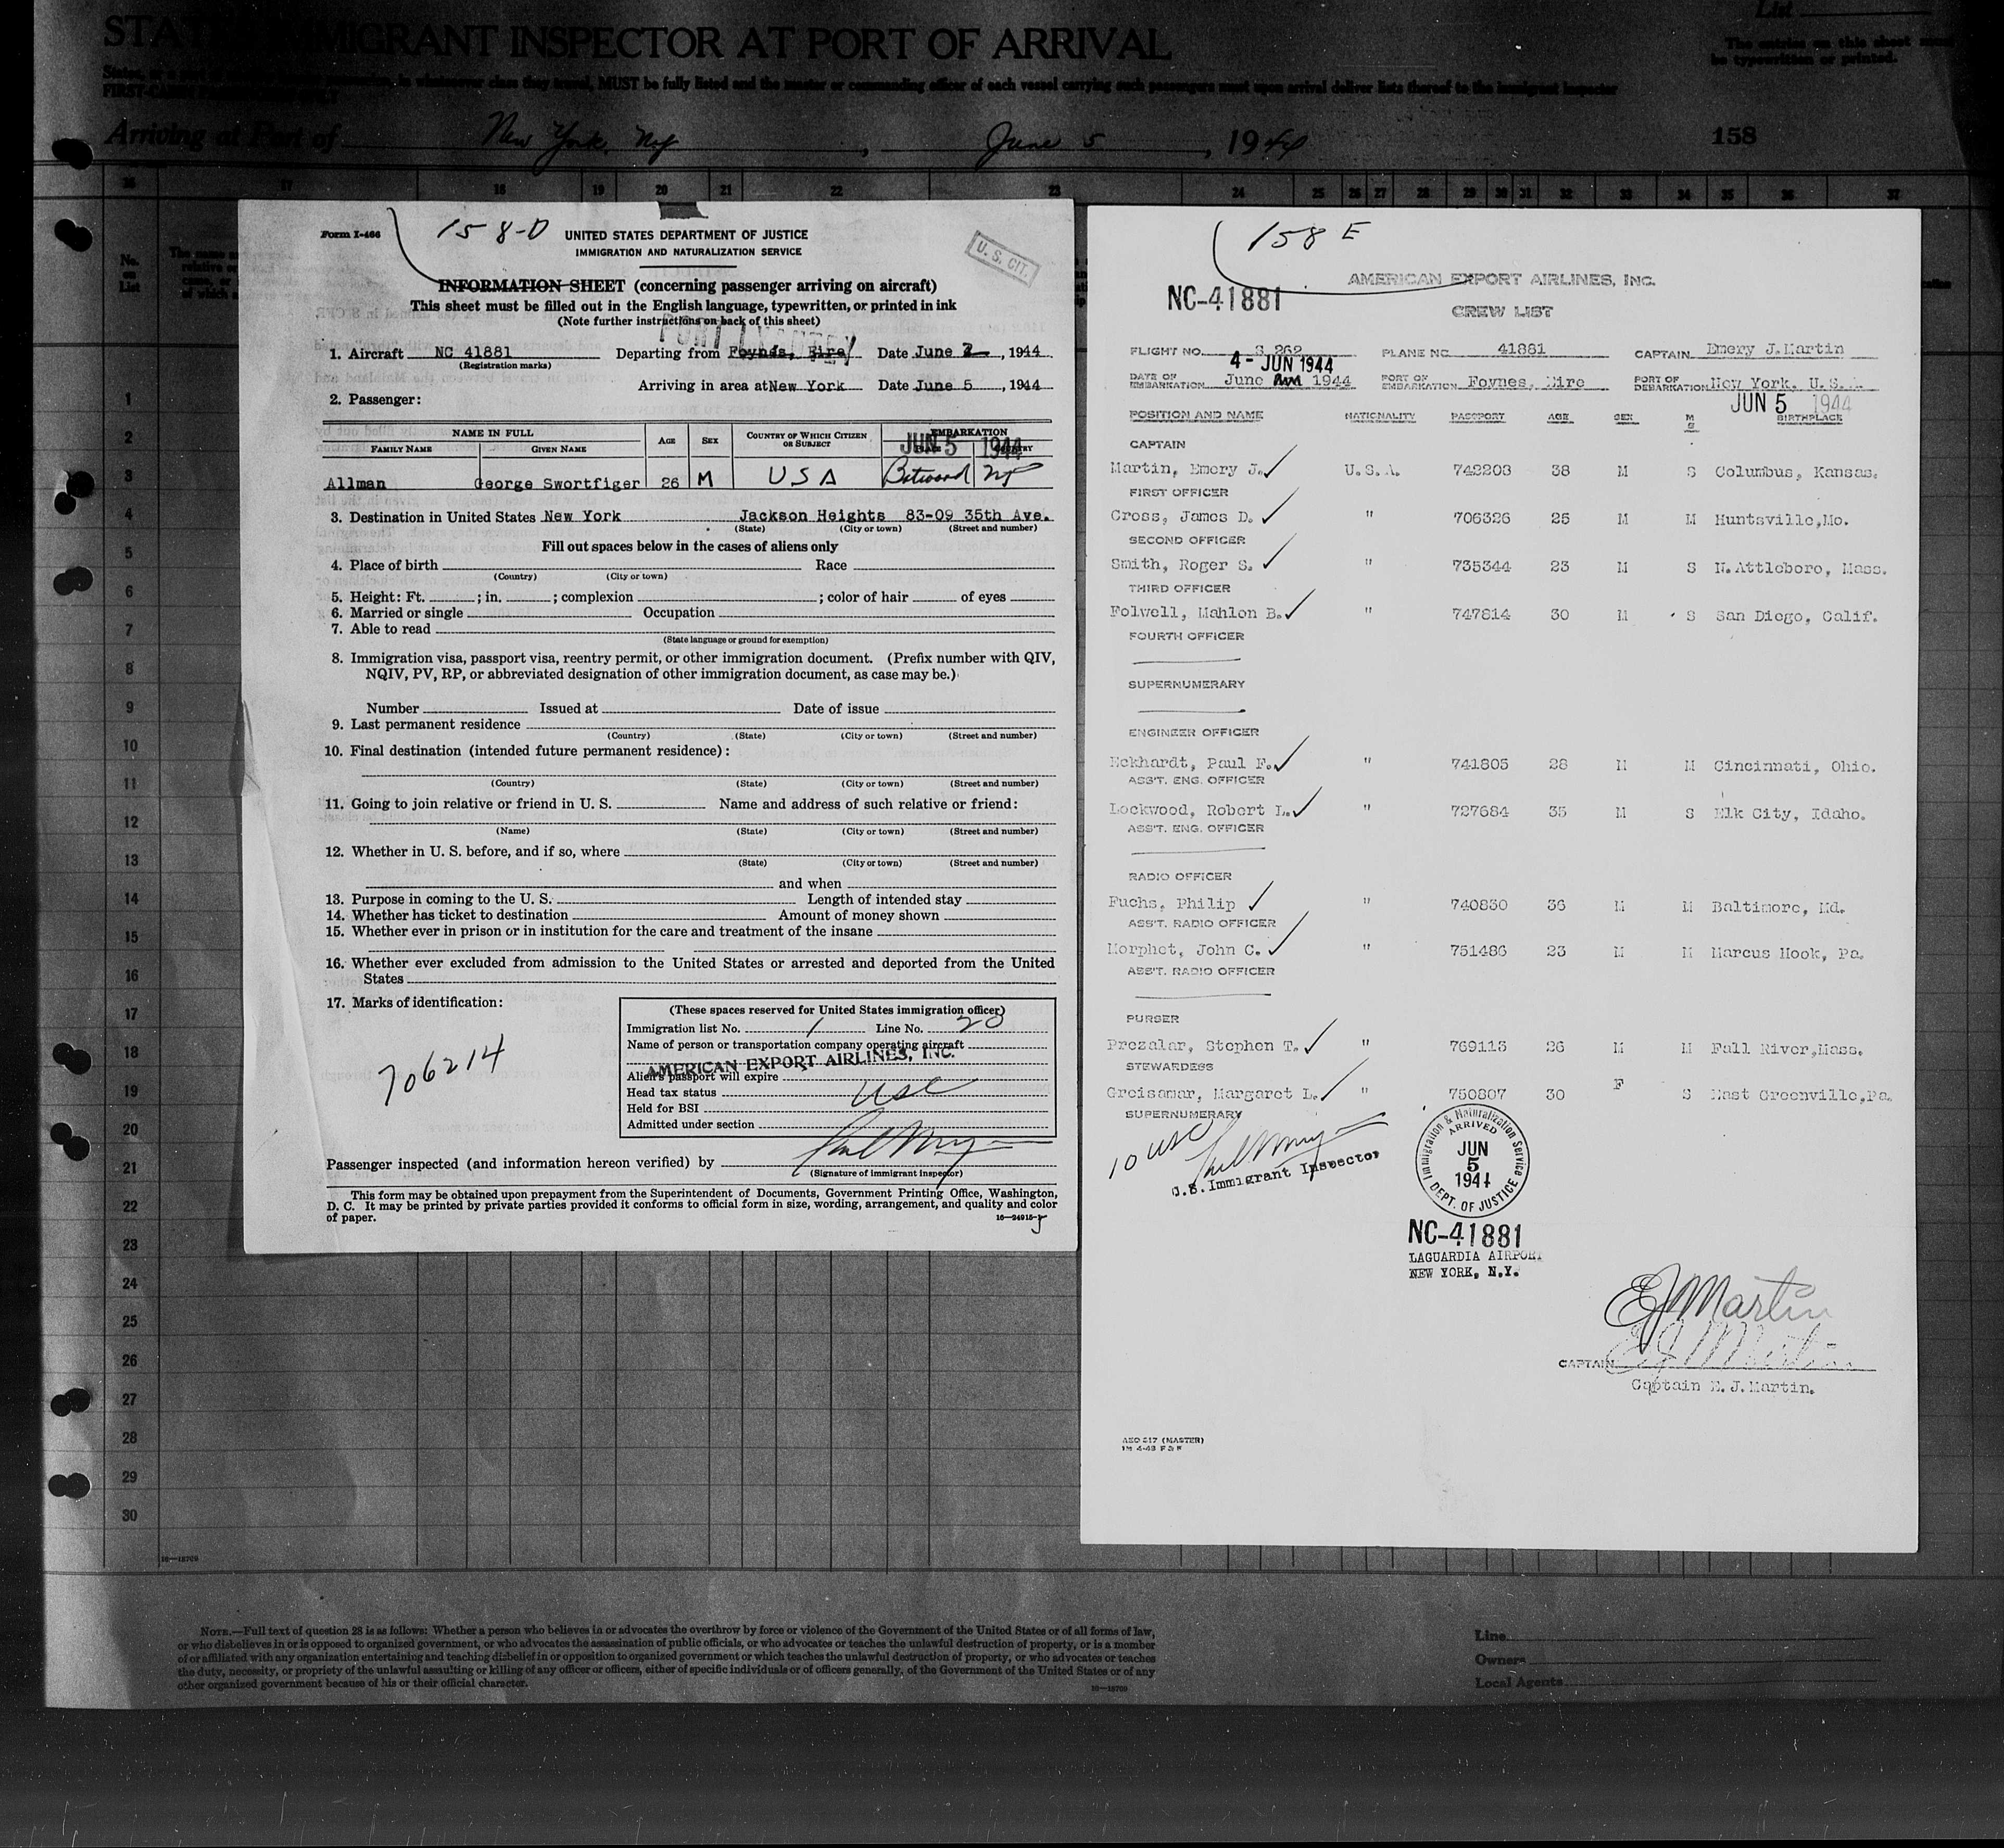 STATES IMMIGRANT INSPECTOR AT PORT OF ARRIVAL
List
The entries on this sheet must
be typewritten or printed.
in whatsoever class they travel, MUST be fully listed and the master or commanding officer of each vessel carrying such passengers must upon arrival deliver lists thereof to the immigrant inspector
Arriving at Port of New York, NY, June 5, 1944
158
16 17 18 19 20 21 22 23 24 25 26 27 28 29 30 31 32 33 34 35 36 37
No.
on
List
1
2
3
4
5
6
7
8
9
10
11
12
13
14
15
16
17
18
19
20
21
22
23
24
25
26
27
28
29
30
Form I-466
158-D
UNITED STATES DEPARTMENT OF JUSTICE
IMMIGRATION AND NATURALIZATION SERVICE
U. S. CIT.
INFORMATION SHEET (concerning passenger arriving on aircraft)
This sheet must be filled out in the English language, typewritten, or printed in ink
(Note further instructions on back of this sheet)
1. Aircraft NC 41881 Departing from Foynes, Eire Date June 2, 1944
(Registration marks)
Arriving in area at New York Date June 5, 1944
2. Passenger:
NAME IN FULL AGE SEX COUNTRY OF WHICH CITIZEN OR SUBJECT EMBARKATION
FAMILY NAME GIVEN NAME
JUN 5 1944
Allman George Swortfiger 26 M USA Botwood NF
3. Destination in United States New York Jackson Heights 83-09 35th Ave.
(State) (City or town) (Street and number)
Fill out spaces below in the cases of aliens only
4. Place of birth Race
(Country) (City or town)
5. Height: Ft. ; in. ; complexion ; color of hair of eyes
6. Married or single Occupation
7. Able to read
(State language or ground for exemption)
8. Immigration visa, passport visa, reentry permit, or other immigration document. (Prefix number with QIV,
NQIV, PV, RP, or abbreviated designation of other immigration document, as case may be.)
Number Issued at Date of issue
9. Last permanent residence
(Country) (State) (City or town) (Street and number)
10. Final destination (intended future permanent residence):
(Country) (State) (City or town) (Street and number)
11. Going to join relative or friend in U. S. Name and address of such relative or friend:
(Name) (State) (City or town) (Street and number)
12. Whether in U. S. before, and if so, where
(State) (City or town) (Street and number)
and when
13. Purpose in coming to the U. S. Length of intended stay
14. Whether has ticket to destination Amount of money shown
15. Whether ever in prison or in institution for the care and treatment of the insane
16. Whether ever excluded from admission to the United States or arrested and deported from the United
States
17. Marks of identification:
706214
(These spaces reserved for United States immigration officer)
Immigration list No. 1 Line No. 20
Name of person or transportation company operating aircraft
AMERICAN EXPORT AIRLINES, INC.
Alien's passport will expire
Head tax status USC
Held for BSI
Admitted under section
Passenger inspected (and information hereon verified) by
(Signature of immigrant inspector)
This form may be obtained upon prepayment from the Superintendent of Documents, Government Printing Office, Washington,
D. C. It may be printed by private parties provided it conforms to official form in size, wording, arrangement, and quality and color
of paper.
16—24915-1
158 E
AMERICAN EXPORT AIRLINES, INC.
NC-41881
CREW LIST
FLIGHT NO. S 262 PLANE NO. 41881 CAPTAIN Emery J. Martin
4 - JUN 1944
DATE OF EMBARKATION June 1944 PORT OF EMBARKATION Foynes, Eire PORT OF DEBARKATION New York, U.S.A.
JUN 5 1944
POSITION AND NAME NATIONALITY PASSPORT AGE SEX M S BIRTHPLACE
CAPTAIN
Martin, Emery J. U.S.A. 742203 38 M S Columbus, Kansas.
FIRST OFFICER
Cross, James D. " 706326 25 M M Huntsville,Mo.
SECOND OFFICER
Smith, Roger S. " 735344 23 M S N.Attleboro, Mass.
THIRD OFFICER
Folwell, Mahlon B. " 747814 30 M S San Diego, Calif.
FOURTH OFFICER
SUPERNUMERARY
ENGINEER OFFICER
Eckhardt, Paul F. " 741805 28 M M Cincinnati, Ohio.
ASS'T. ENG. OFFICER
Lockwood, Robert L. " 727684 35 M S Elk City, Idaho.
ASS'T. ENG. OFFICER
RADIO OFFICER
Fuchs, Philip " 740830 36 M M Baltimore, Md.
ASS'T. RADIO OFFICER
Morphet, John C. " 751486 23 M M Marcus Hook, Pa.
ASS'T. RADIO OFFICER
PURSER
Prezalar, Stephen T. " 769113 26 M M Fall River,Mass.
STEWARDESS
Greisamar, Margaret L. " 750807 30 F S East Greenville,Pa.
SUPERNUMERARY
10 USC
U.S. Immigrant Inspector
Immigration & Naturalization Service
ARRIVED
JUN
5
1944
DEPT. OF JUSTICE
NC-41881
LAGUARDIA AIRPORT
NEW YORK, N.Y.
EJ Martin
CAPTAIN EJ Martin
Captain E. J. Martin.
AEO 217 (MASTER)
NOTE.—Full text of question 28 is as follows: Whether a person who believes in or advocates the overthrow by force or violence of the Government of the United States or of all forms of law,
or who disbelieves in or is opposed to organized government, or who advocates the assassination of public officials, or who advocates or teaches the unlawful destruction of property, or is a member
of or affiliated with any organization entertaining and teaching disbelief in or opposition to organized government or which teaches the unlawful destruction of property, or who advocates or teaches
the duty, necessity, or propriety of the unlawful assaulting or killing of any officer or officers, either of specific individuals or of officers generally, of the Government of the United States or of any
other organized government because of his or their official character.
16—18709
Line
Owners
Local Agents